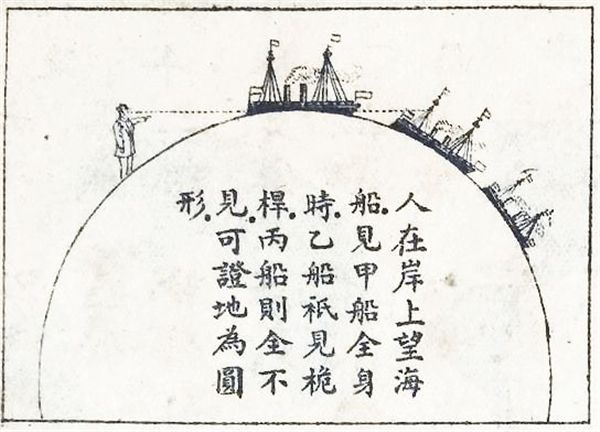 人在岸上望海
船.見甲船全身
時.乙船祇見桅
桿.丙船則全不
見.可證地為圓
形.